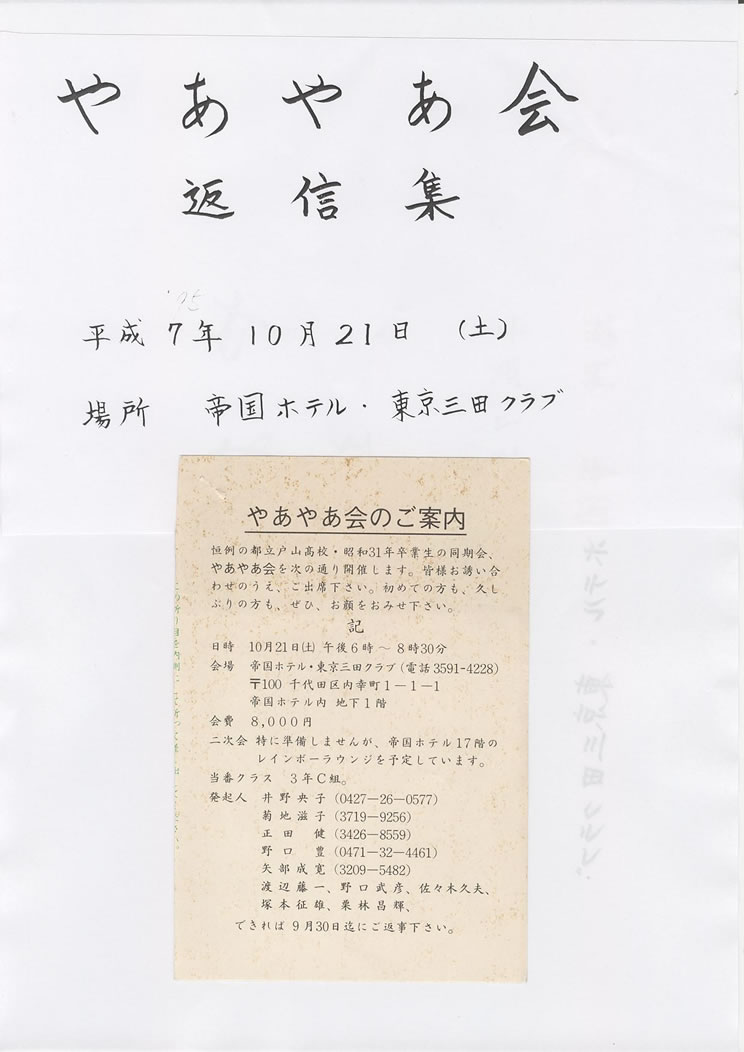 やあやあ会
返信集
'95
平成7年10月21日 (土)
場所 帝国ホテル・東京三田クラブ
やあやあ会のご案内
恒例の都立戸山高校・昭和31年卒業生の同期会、
やあやあ会を次の通り開催します。皆様お誘い合
わせのうえ、ご出席下さい。初めての方も、久し
ぶりの方も、ぜひ、お顔をおみせ下さい。
記
日時 10月21日(土) 午後6時～8時30分
会場 帝国ホテル・東京三田クラブ(電話3591-4228)
〒100 千代田区内幸町1－1－1
帝国ホテル内 地下1階
会費 8,000円
二次会 特に準備しませんが、帝国ホテル17階の
レインボーラウンジを予定しています。
当番クラス 3年C組。
発起人 井野央子(0427－26－0577)
菊地滋子(3719－9256)
正田 健(3426－8559)
野口 豊(0471－32－4461)
矢部成寛(3209－5482)
渡辺藤一、野口武彦、佐々木久夫、
塚本征雄、栗林昌輝、
できれば9月30日迄にご返事下さい。